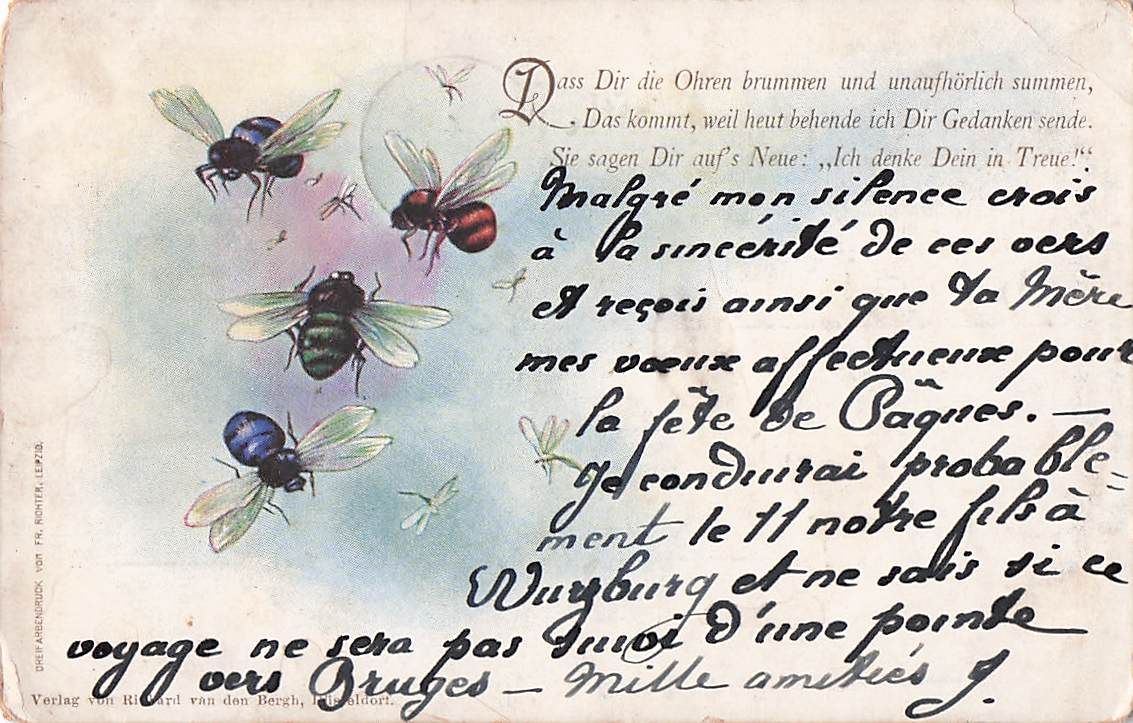 Dass Dir die Ohren brummen und unaufhörlich summen,
Das kommt, weil heut behende ich Dir Gedanken sende.
Sie sagen Dir auf's Neue: „Ich denke Dein in Treue!“
Malgré mon silence crois
à la sincérité de ces vers
et reçois ainsi que ta Mère
mes vœux affectueux pour
la fête de Pâques. —
Je conduirai probable=
ment le 11 notre fils à
Wurzburg et ne sais si ce
voyage ne sera pas suivi d'une pointe
vers Bruges — Mille amitiés J.
DREIFARBENDRUCK VON FR. RICHTER, LEIPZIG.
Verlag von Richard van den Bergh, Düsseldorf.